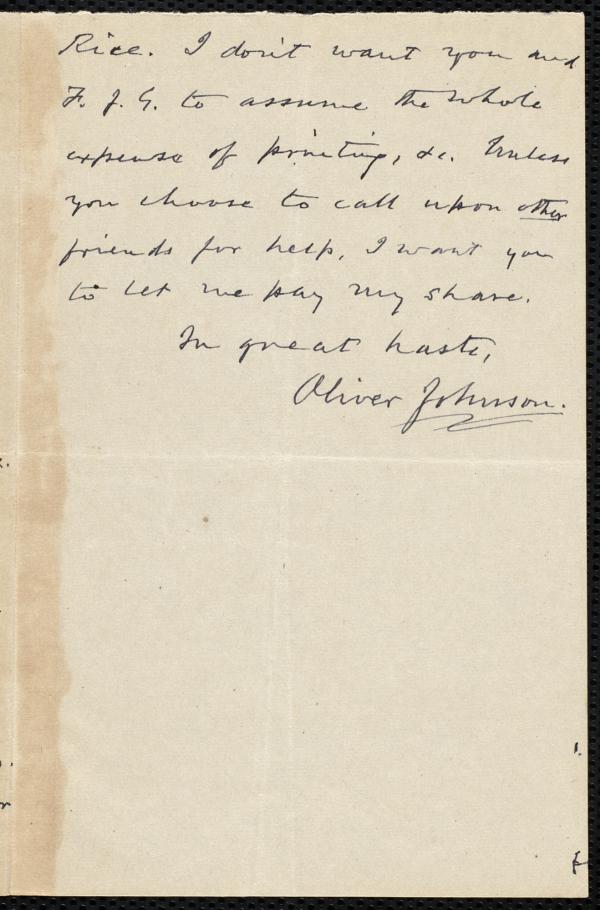 Rice. I don't want you and
F. J. G. to assume the whole
expense of printing, &c. Unless
you choose to call upon other
friends for help, I want you
to let me pay my share.
In great haste,
Oliver Johnson.